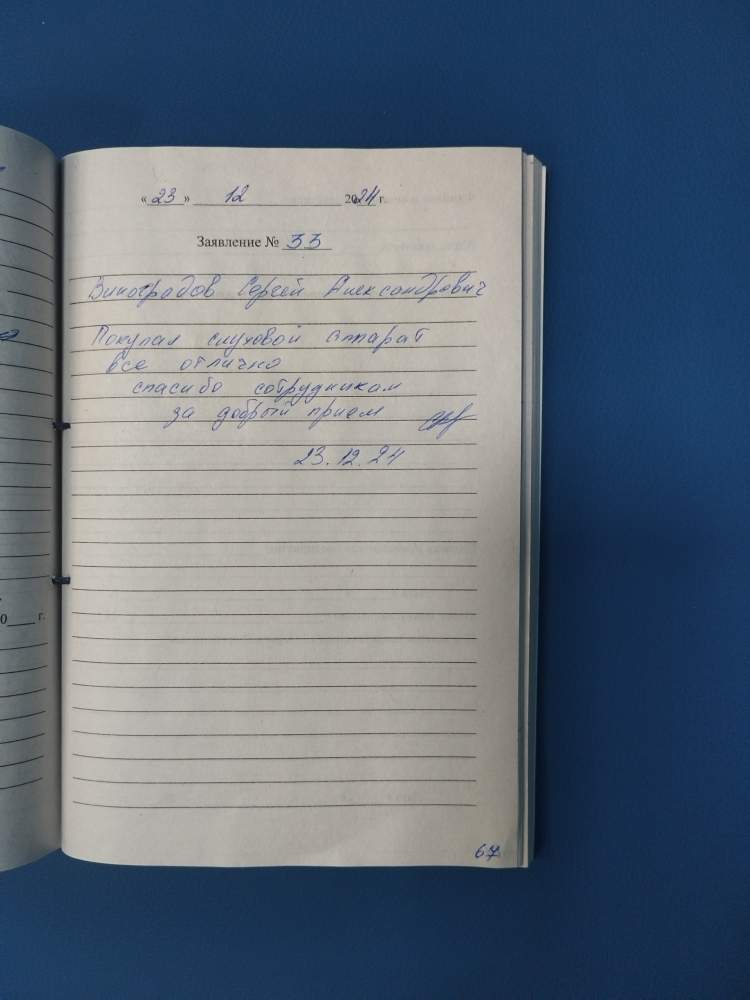 « 23 » 12 2024 г.
Заявление № 33
Виноградов Сергей Александрович
Покупал слуховой аппарат
все отлично
спасибо сотрудникам
за добрый прием
23.12.24
0____ г.
67